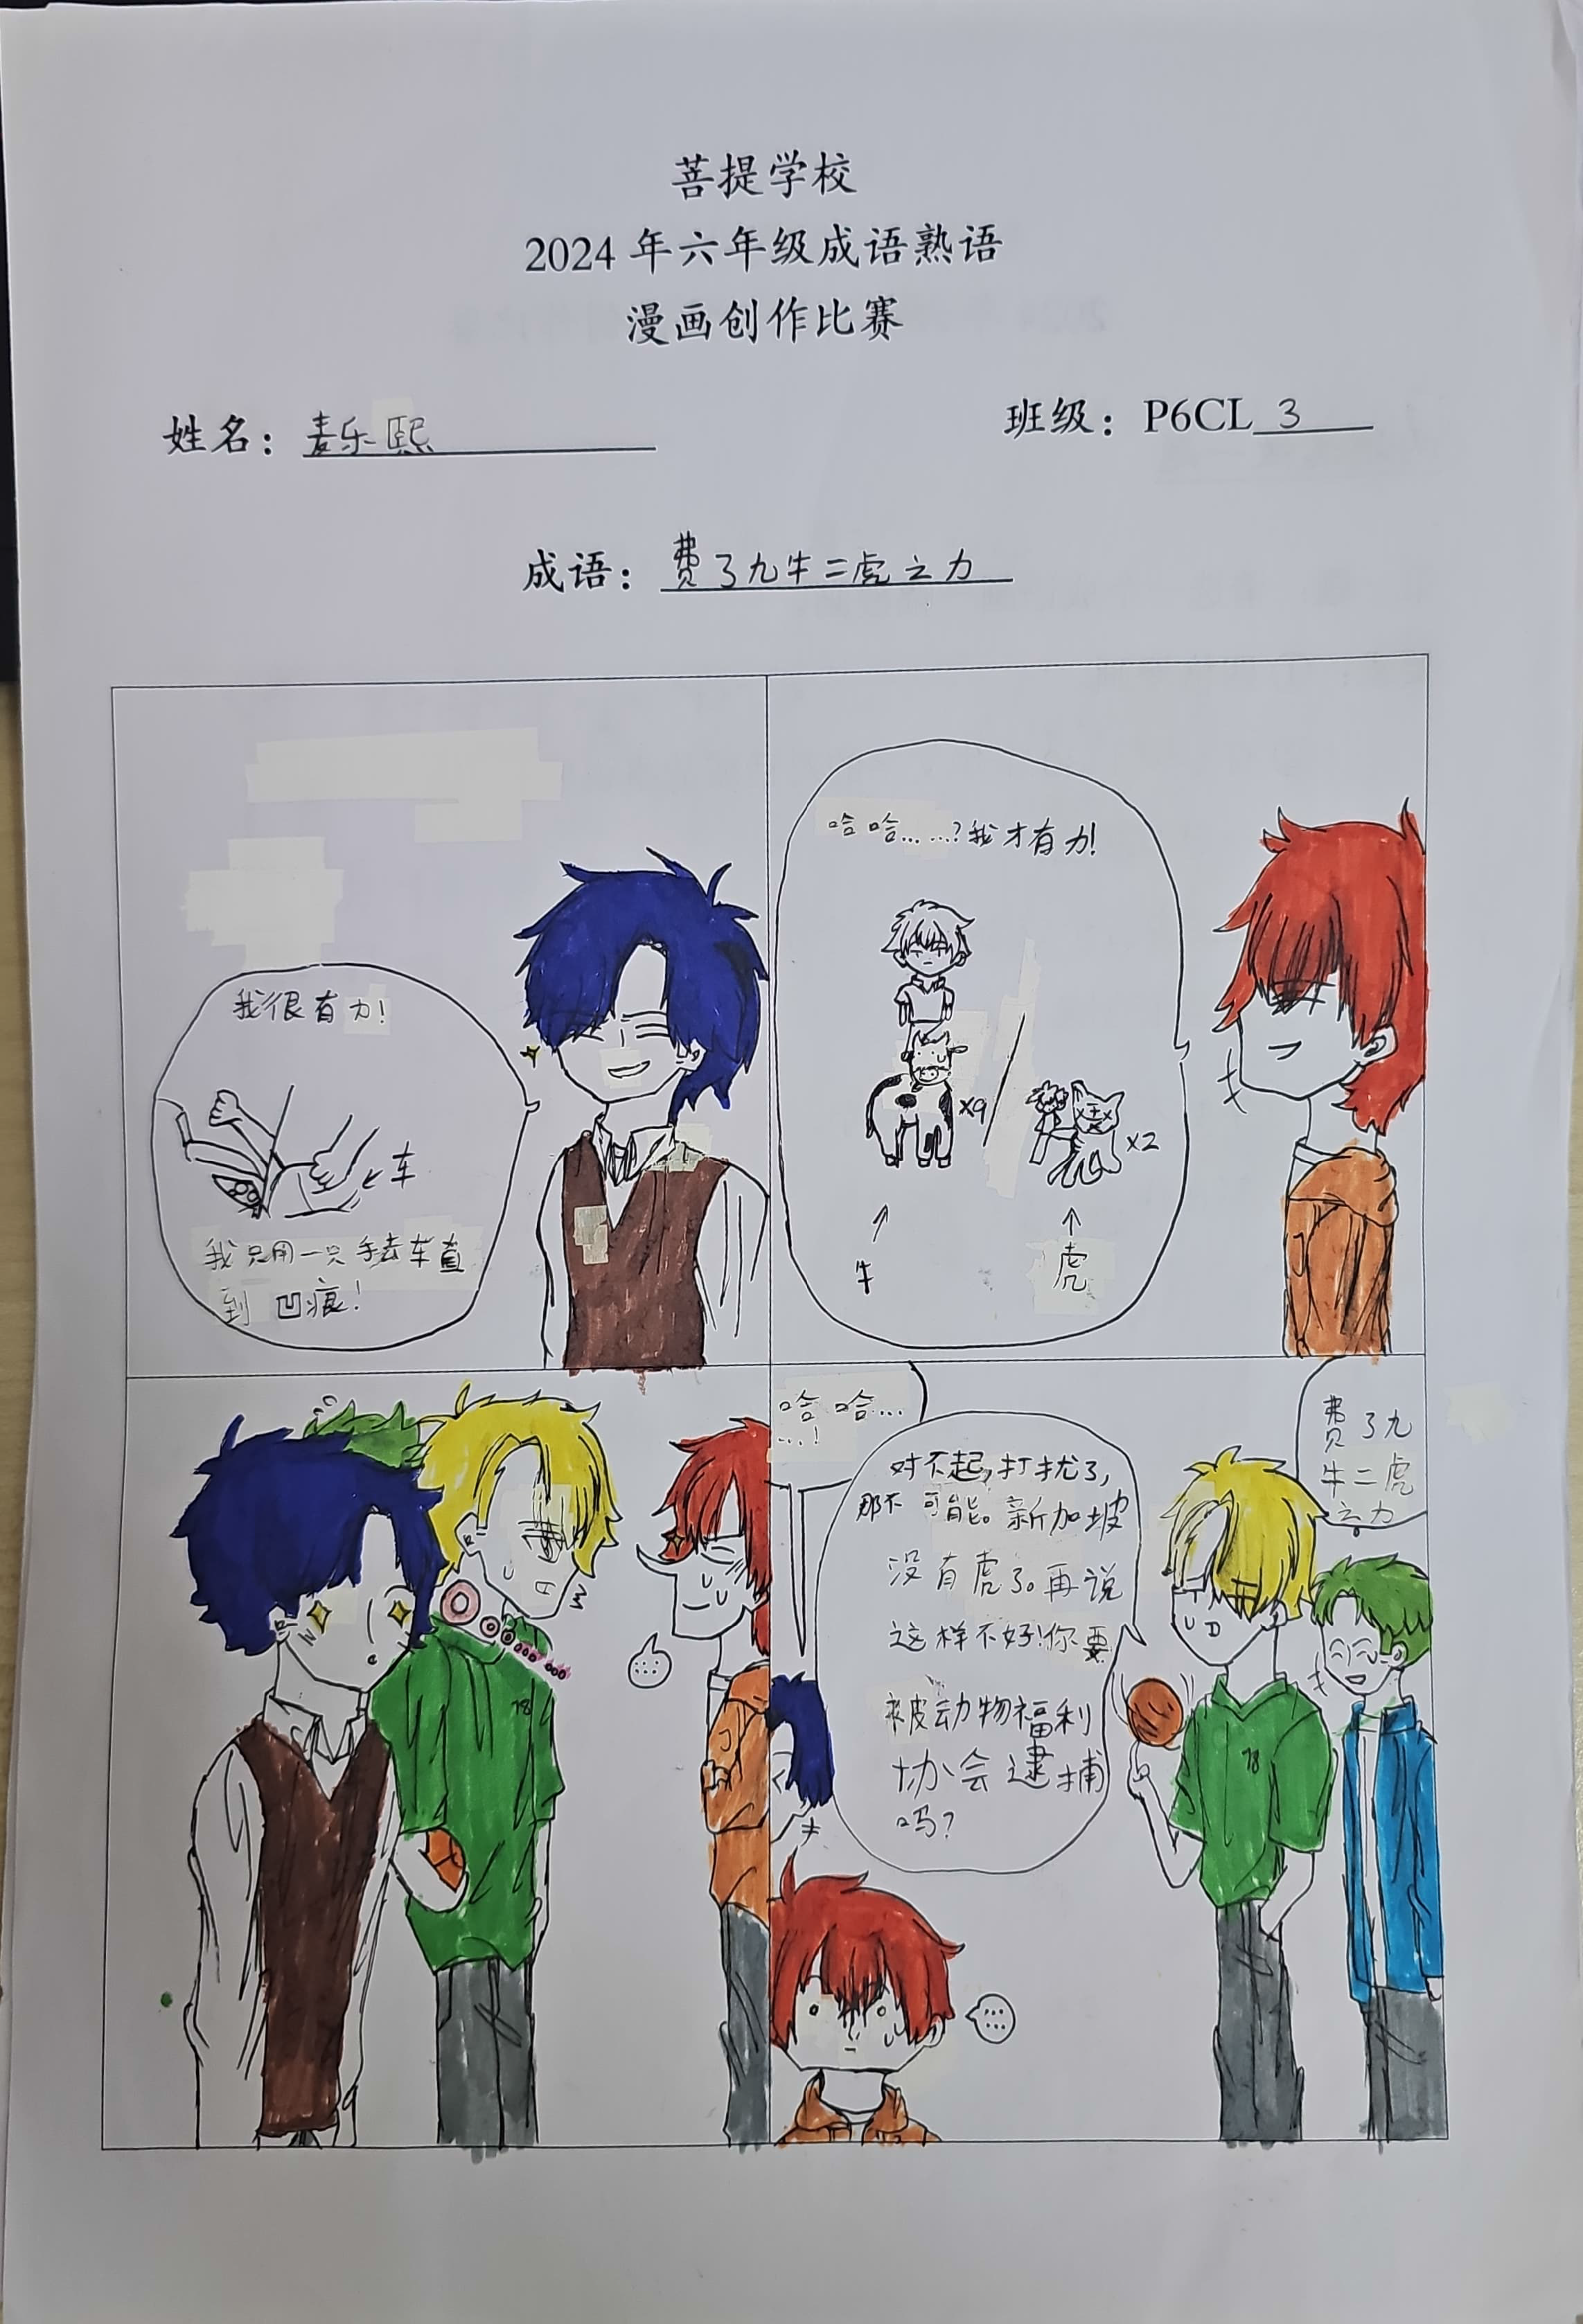 菩提学校
2024 年六年级成语熟语
漫画创作比赛
姓名：麦乐熙
班级：P6CL 3
成语：费了九牛二虎之力
我很有力！
车
我只用一只手去车直
到 凹痕！
哈哈……？我才有力！
x9
x2
牛
虎
78
哈哈…
…！
对不起，打扰了，
那不可能。新加坡
没有虎了。再说
这样不好！你要
被动物福利
协会逮捕
吗？
费了九
牛二虎
之力
78